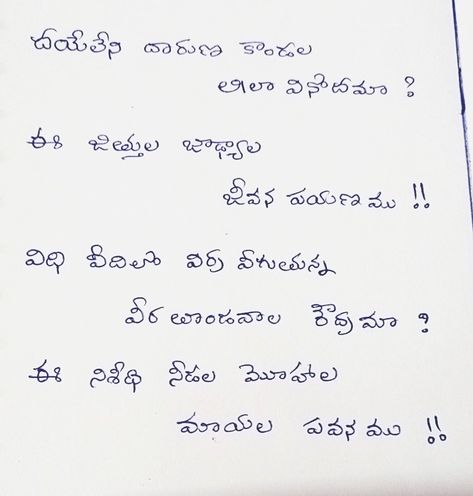 దయేలేని దారుణ కాండల
లీలా వినోదమా ?
ఈ జిత్తుల జాడ్యాల
జీవన పయణ ము !!
విధి వీదిలో విర్ర వీగుతున్న
వీర తాండవాల రౌద్రమా ?
ఈ నిశీధి నీడల మొహాల
మాయల పవన ము !!